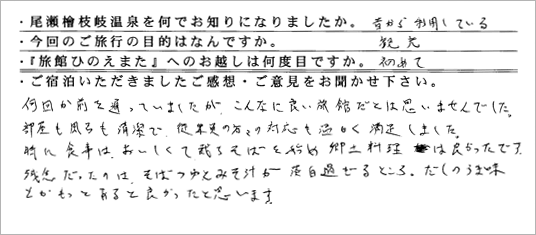 ・尾瀬檜枝岐温泉を何でお知りになりましたか。 昔から利用している
・今回のご旅行の目的はなんですか。 観光
・『旅館ひのえまた』へのお越しは何度目ですか。 初めて
・ご宿泊いただきましたご感想・ご意見をお聞かせ下さい。
何回か前を通っていましたが、こんなに良い旅館だとは思いませんでした。
部屋も風呂も清潔で、従業員の方々の対応も温かく満足しました。
特に食事は、おいしくて裁ちそばを始め郷土料理は良かったです。
残念だったのは、そばつゆとみそ汁が 過ぎるところ。だしのうま味
とかもっとあると良かったと思います。